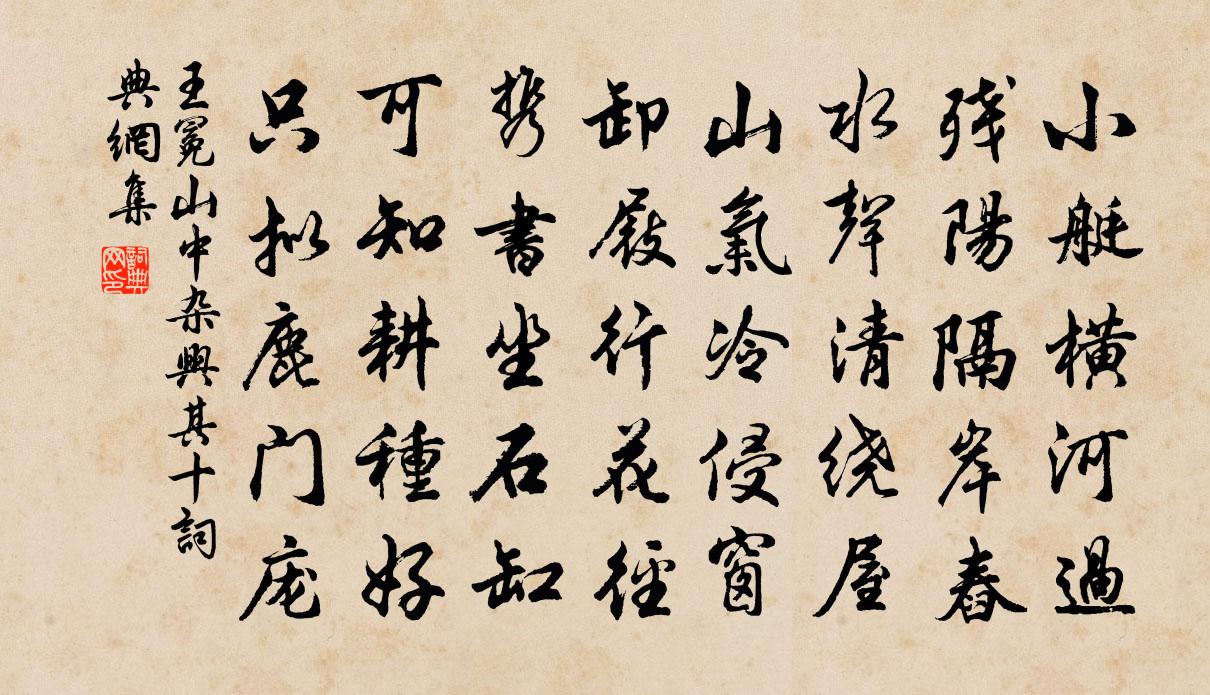 小艇橫河過
残陽隔岸舂
水聲清绕屋
山氣冷侵窗
卸屐行花徑
携書坐石缸
可知耕種好
只拟鹿门庞
王冕山中杂興其十詞
典網集
詞典
网印